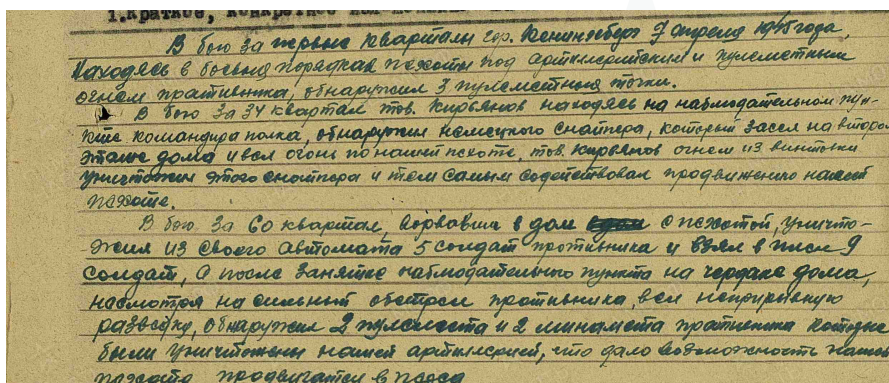 1. Краткое, конкретное изложение
В бою за первые кварталы гор. Кенигсберг 7 апреля 1945 года,
находясь в боевых порядках пехоты под артиллерийским и пулеметным
огнем противника, обнаружил 3 пулеметные точки.
В бою за 34 квартал тов. Кирьянов находясь на наблюдательном пун-
кте командира полка, обнаружил немецкого снайпера, который засел на втором
этаже дома и вел огонь по нашей пехоте, тов. Кирьянов огнем из винтовки
уничтожил этого снайпера и тем самым содействовал продвижению нашей
пехоте.
В бою за 60 квартал, ворвавшись в дом с пехотой, уничто-
жил из своего автомата 5 солдат противника и взял в плен 9
солдат, а после занятие наблюдательного пункта на чердаке дома,
насмотря на сильный обстрел противника, вел непрерывную
разведку, обнаружил 2 пулемета и 2 миномета противника которые
были уничтожены нашей артиллерией, что дало возможность нашей
пехоте продвигатся вперед